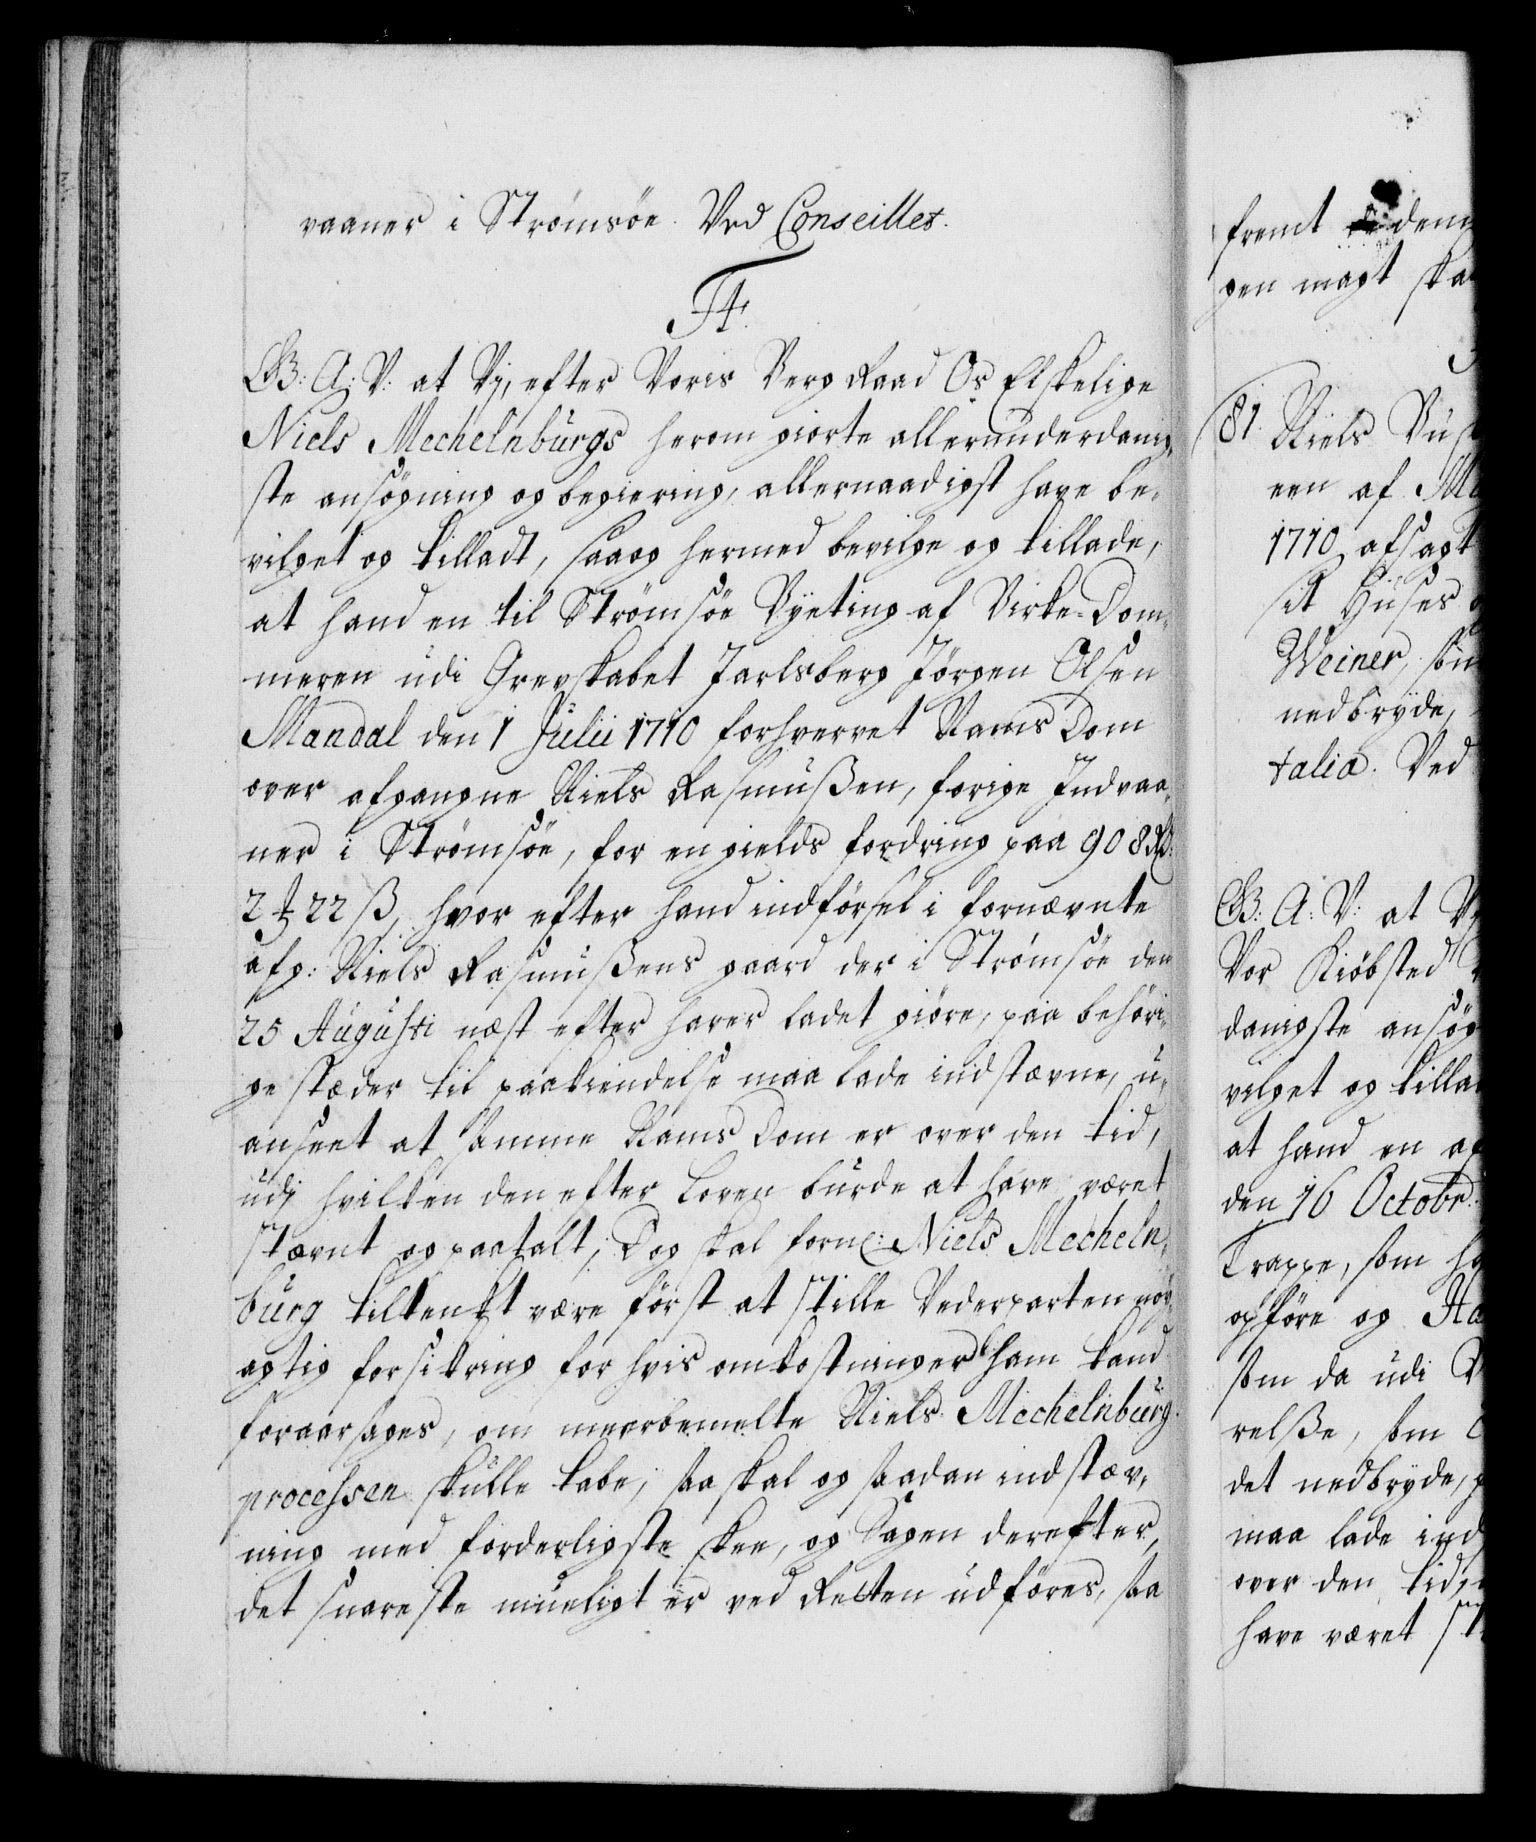 vaaner i Strømsöe. Ved Conseillet.
F4.
G: A: V: at Vj, efter Voris Berg Raad Os Elskelige
Niels Mechelnburgs herom giorte allerunderdanig-
ste ansögning og begiering, allernaadigst have be-
vilget og tilladt, saa og hermed bevilge og tillade,
at hand en til Strømsöe Byeting af Birke-Dom-
meren udi Grevskabet Jarlsberg Jörgen Olsen
Mandal den 1 Julii 1710 forhvervet Nams Dom
over afgangne Niels Rasmußen, forige Indvaa-
ner i Strømsöe, for en gields fordring paa 908 Rd:
2 ₰ 22 ß, hvor efter hand indførsel i fornævnte
afg: Niels Rasmußens gaard der i Strømsöe den
25 Augusti næst efter haver ladet giöre, paa behöri-
ge stæder til paakiendelse maa lade indstævne, u-
anseet at samme Nams Dom er over den tid,
udj hvilken den efter Loven burde at have været
stævnt og paatalt; Dog skal forne: Niels Mecheln-
burg tiltenkt være först at stille Vederparten nöy-
agtig forsikring for hvis omkostninger ham kand
foraarsages, om meerbemelte Niels Mechelnburg
processen skulle tabe; saa skal og saadan indstæv-
ning med forderligste skee, og Sagen derefter,
det snareste mueligt er ved Retten udföres, saa
fremt
gen magt ska
81. Niels
een af
1710 afsagt
sit Huses
Weiner, som
nedbryde,
talia. Ved
G: A: V: at V
Vor Kiöbsted
danigste ansög
vilget og tilla
at hand en af
den 16 Octobr.
Trappe, som
opföre og Ha
som da udi
relße, som
det nedbryde,
maa lade ind
over den tid,
have været st